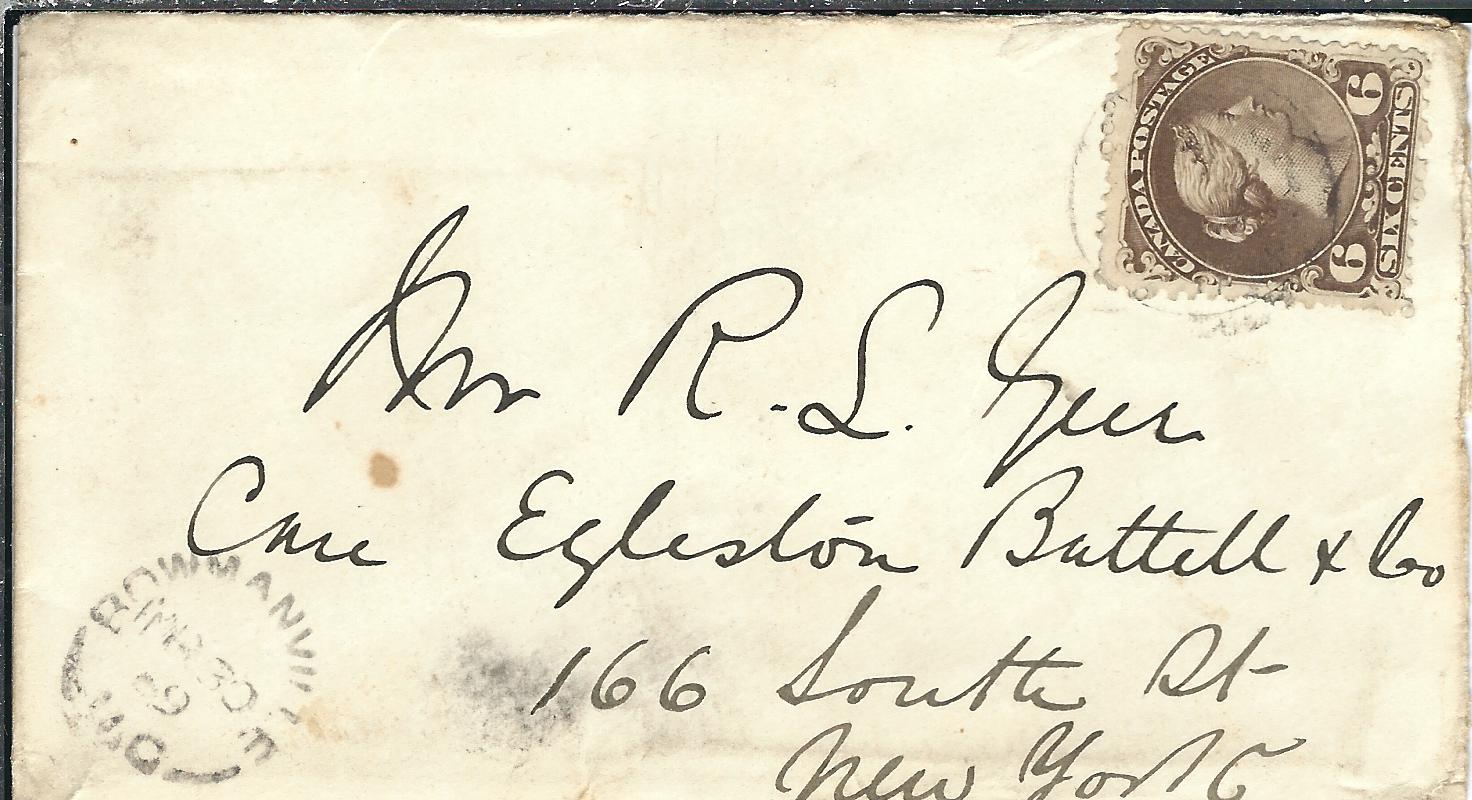 CANADA POSTAGE
6 6
SIX CENTS
R. L. Geer
Care Egleston Battell & Co
166 South St
New York
BOWMANVILLE
MR 30
ONT